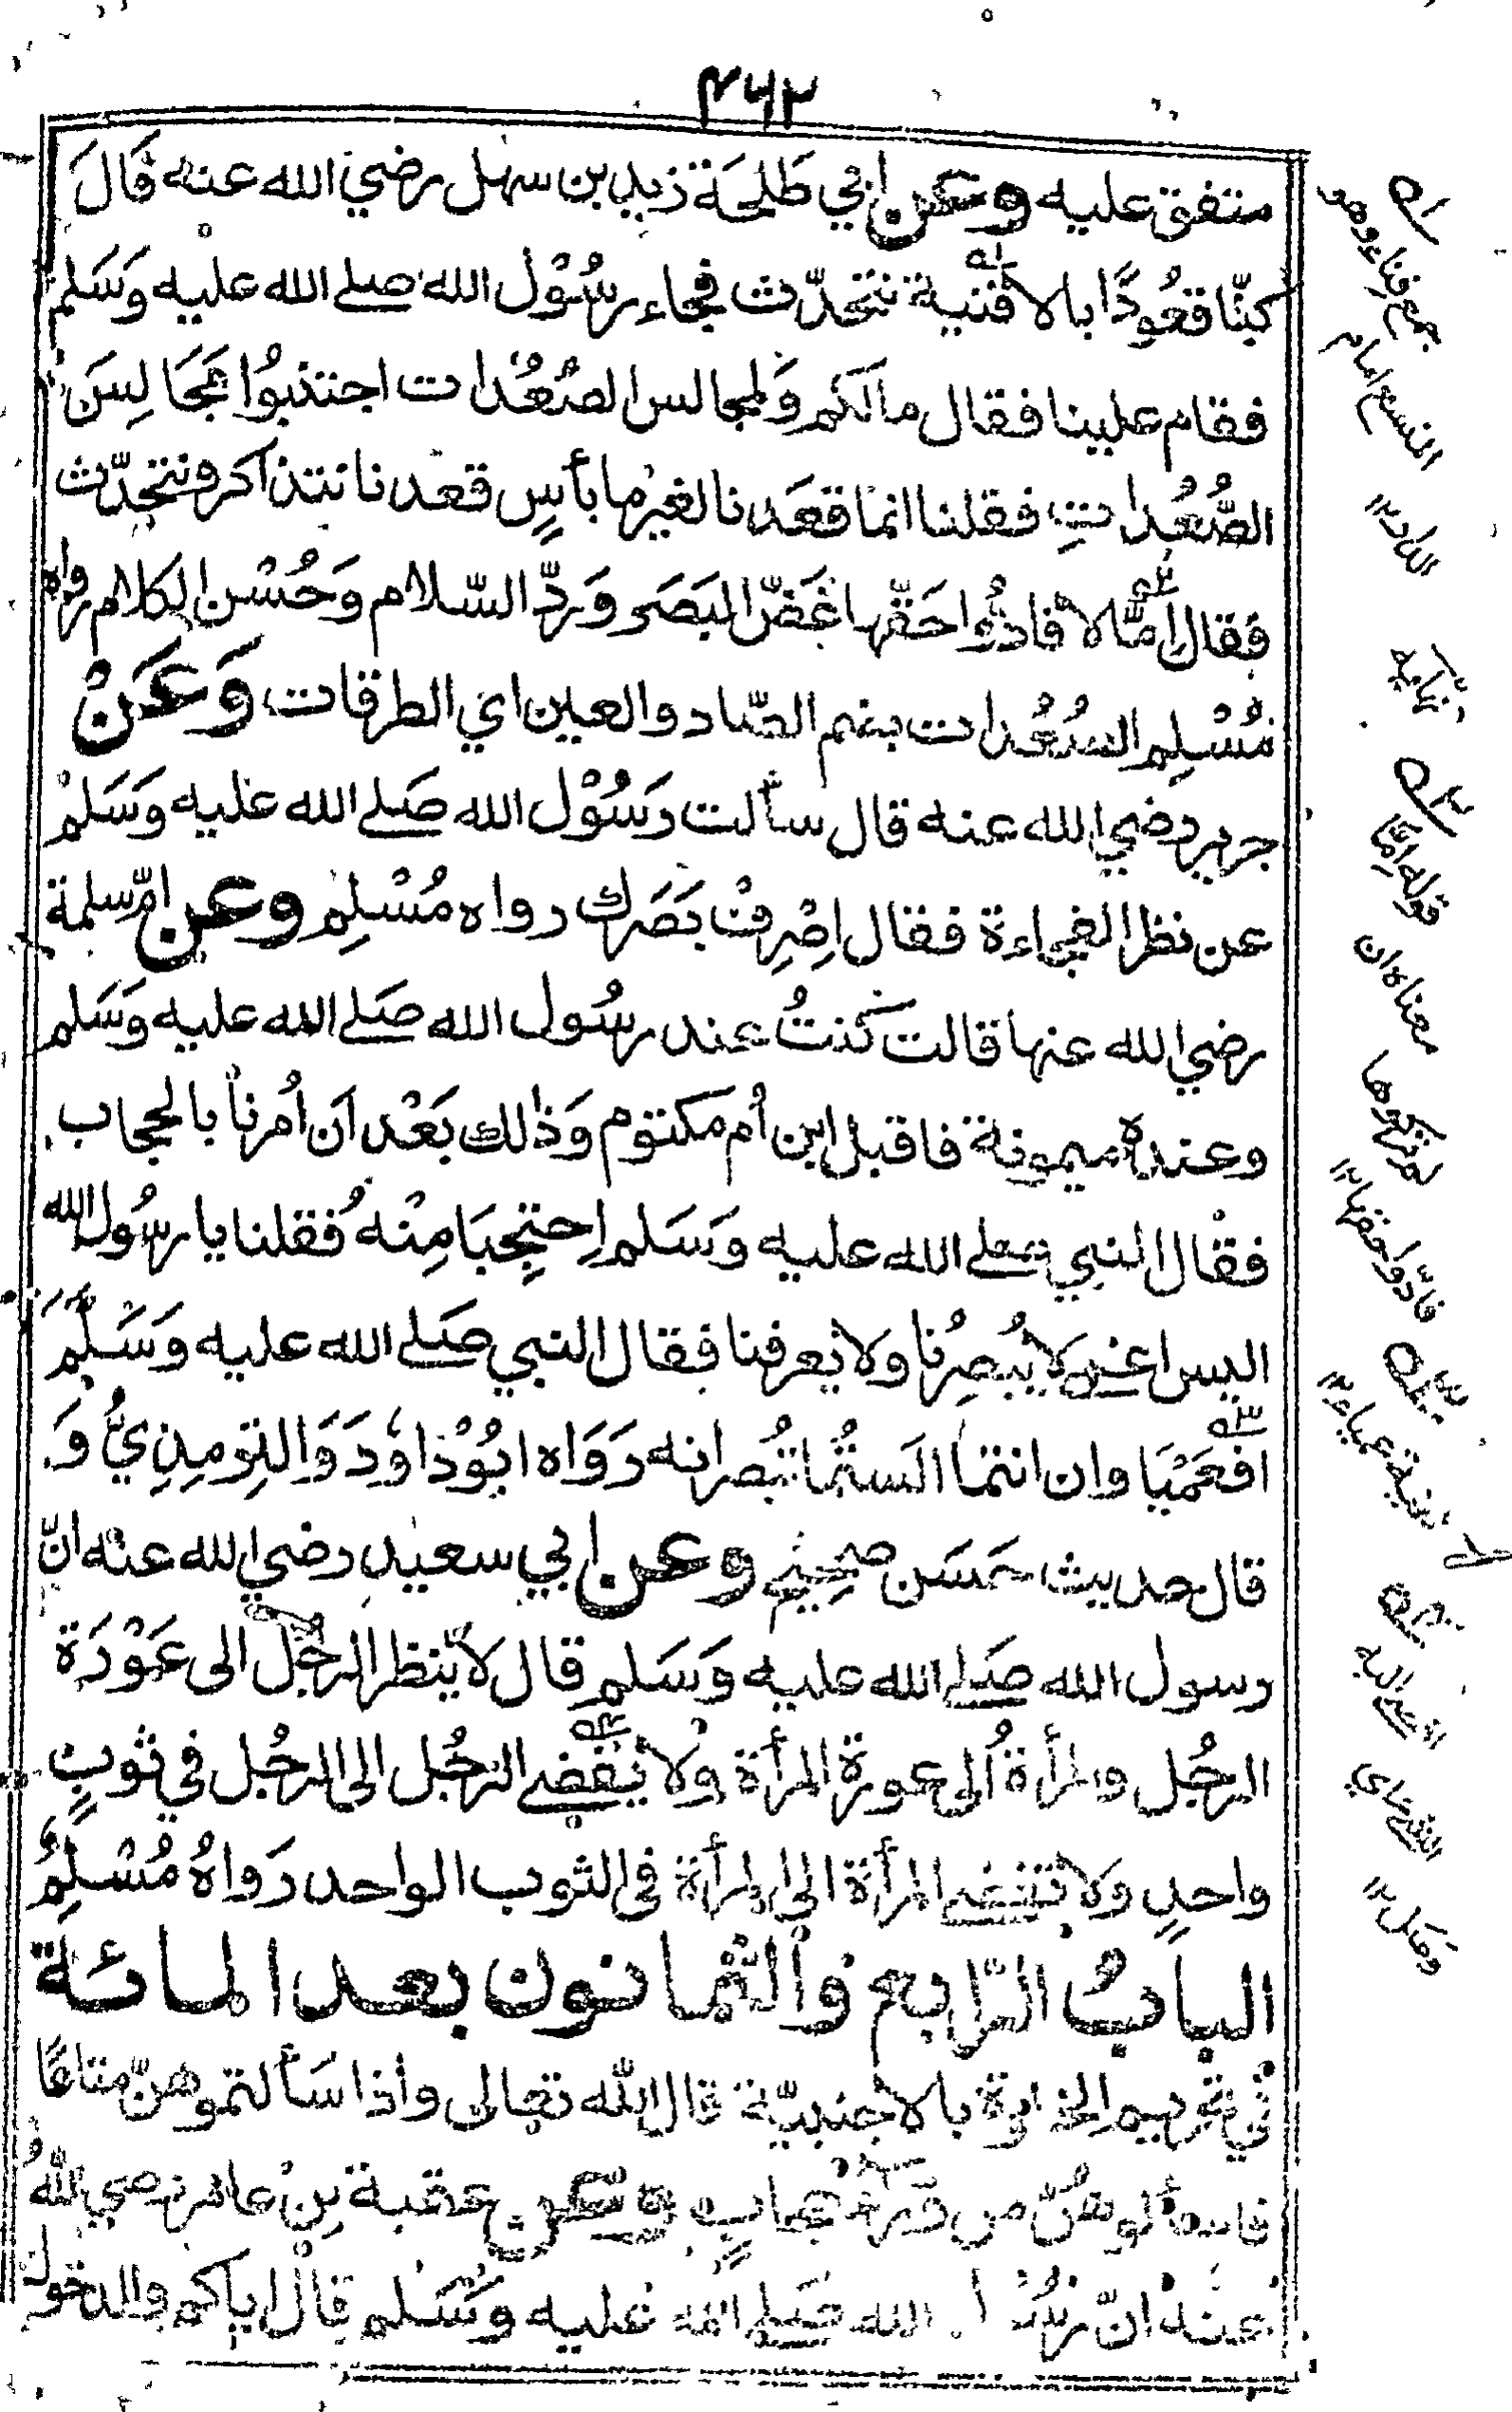 ٤٦٢
متفق عليه وعن ابي طَلحَة زيد بن سهل رضي الله عنه قَالَ
كنّا قعُودًا بالافنية نتحدّث فجاء رسُوْل الله صلے الله عليه وَسَلم
فقام علينا فقال مالكم وَلمجالس الصُعُدات اجتنبوُا مجَالِسَ
الصُّعُداتِ فقلنا انما قعَدنا لغيْر ما بأسٍ قعدنا نتذاكر ونتحدّث
فقال اِمَّالا فادُّوا حَقّها غَضّ البَصَر وَردّ السّلام وَحُسْن الكلام رواه
مُسْلِم الصُعُدات بضم الصّاد والعين اي الطرقات وَعَنْ
جرير رضي الله عنه قال سألت رَسُوْل الله صَلے الله عليه وَسَلمْ
عن نظر الفجاءة فقال اِصْرِفْ بَصَرك رواه مُسْلِم وعن امّ سلمة
رضي الله عنها قالت كنتُ عند رسُول الله صَلے الله عليه وَسَلم
وعنده ميمونة فاقبل ابن أم مكتوم وَذٰلك بَعْد اَن اُمرنا بالحجاب
فقال النبي صلے الله عليه وَسَلم اِحتجِبَا مِنْهُ فقلنا يا رسُول الله
اليس اعمےٰ لا يُبصِرُنا ولا يعرفنا فقال النبي صَلے الله عليه وَسَلّمَ
افعَمْيَا وان انتما اَلَستُما تبُصرانه رَوَاه ابُوْداوٗد وَالتِرمِذِيُّ وَ
قال حديث حَسَن صَحِيْح وعن ابي سعيد رضي الله عنه انّ
رسول الله صَلے الله عليه وَسَلم قال لا ينظر الرجُل الى عَوْرَة
الرجُل ولمرأة اُلى عورة المرأة ولا يفضے الرجُل الى الرجُل في ثوبٍ
واحدٍ وَلا تفضے المرأة الى المرأة فى الثوب الواحد رَواهُ مُسْلِمٌ
البابُ الرّابع وَالثمانون بعد المائة
في تحريم الخلوة بالاجنبيّة قال الله تعالى واذا سَألتموهنّ متاعًا
فاسألوهُنّ من وّرآء حجابٍ وَعَن عقبة بِنْ عامر رضي اللهُ
عنهُ انّ رسُول الله صَلے الله عليه وَسَلم قال اياكم والدخول
١ه
جمع فناء وهو
المتسع امام
الدار ١٢
نهايه
٢ه
قوله امّا
معناه ان
لم تتركوها
فادّوا حقها ١٢
٣ه
تثنية عمياء ١٢
٤ه
افضے اليه
الشے اي
وصَل ١٢